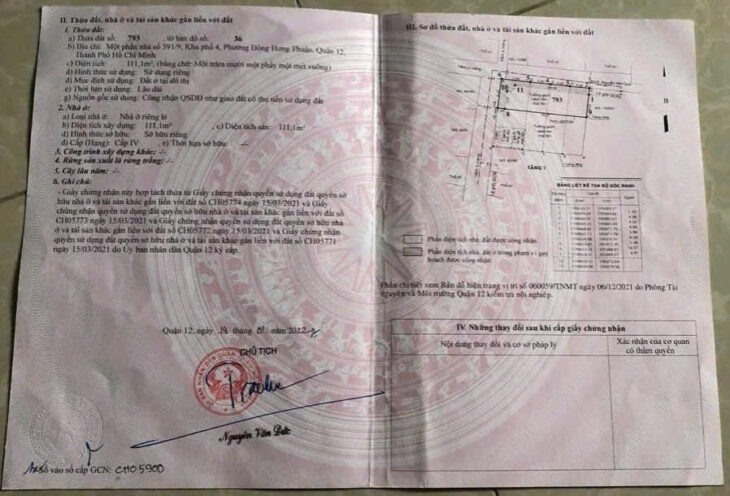 II. Thửa đất, nhà ở và tài sản khác gắn liền với đất
1. Thửa đất:
a) Thửa đất số: 793 , tờ bản đồ số: 36
b) Địa chỉ: Một phần nhà số 391/9, Khu phố 4, Phường Đông Hưng Thuận, Quận 12,
Thành Phố Hồ Chí Minh
c) Diện tích: 111,1m², (bằng chữ: Một trăm mười một phẩy một mét vuông)
d) Hình thức sử dụng: Sử dụng riêng
đ) Mục đích sử dụng: Đất ở tại đô thị
e) Thời hạn sử dụng: Lâu dài
g) Nguồn gốc sử dụng: Công nhận QSDĐ như giao đất có thu tiền sử dụng đất
2. Nhà ở:
a) Loại nhà ở: Nhà ở riêng lẻ
b) Diện tích xây dựng: 111,1m² , c) Diện tích sàn: 111,1m²
d) Hình thức sở hữu: Sở hữu riêng
đ) Cấp (Hạng): Cấp IV , e) Thời hạn sở hữu: -/-
3. Công trình xây dựng khác: -/-
4. Rừng sản xuất là rừng trồng: -/-
5. Cây lâu năm: -/-
6. Ghi chú:
- Giấy chứng nhận này hợp tách thửa từ Giấy chứng nhận quyền sử dụng đất quyền sở
hữu nhà ở và tài sản khác gắn liền với đất số CH05774 ngày 15/03/2021 và Giấy
chứng nhận quyền sử dụng đất quyền sở hữu nhà ở và tài sản khác gắn liền với đất số
CH05773 ngày 15/03/2021 và Giấy chứng nhận quyền sử dụng đất quyền sở hữu nhà
ở và tài sản khác gắn liền với đất số CH05772 ngày 15/03/2021 và Giấy chứng nhận
quyền sử dụng đất quyền sở hữu nhà ở và tài sản khác gắn liền với đất số CH05771
ngày 15/03/2021 do Ủy ban nhân dân Quận 12 ký cấp.
Quận 12, ngày 19 tháng 01 năm 2022
CHỦ TỊCH
Nguyễn Văn Đức
Số vào sổ cấp GCN: CH05900
III. Sơ đồ thửa đất, nhà ở và tài sản khác gắn liền với đất
B
10 11 793 1
8
TẦNG 1
BẢNG LIỆT KÊ TỌA ĐỘ GÓC RANH
Phần diện tích nhà, đất được công nhận.
Phần diện tích nhà, đất ở trong phạm vi quy
hoạch được công nhận.
Phần chi tiết xem Bản đồ hiện trạng vị trí số 060059/TNMT ngày 06/12/2021 do Phòng Tài
nguyên và Môi trường Quận 12 kiểm tra nội nghiệp.
IV. Những thay đổi sau khi cấp giấy chứng nhận
Nội dung thay đổi và cơ sở pháp lý
Xác nhận của cơ quan
có thẩm quyền